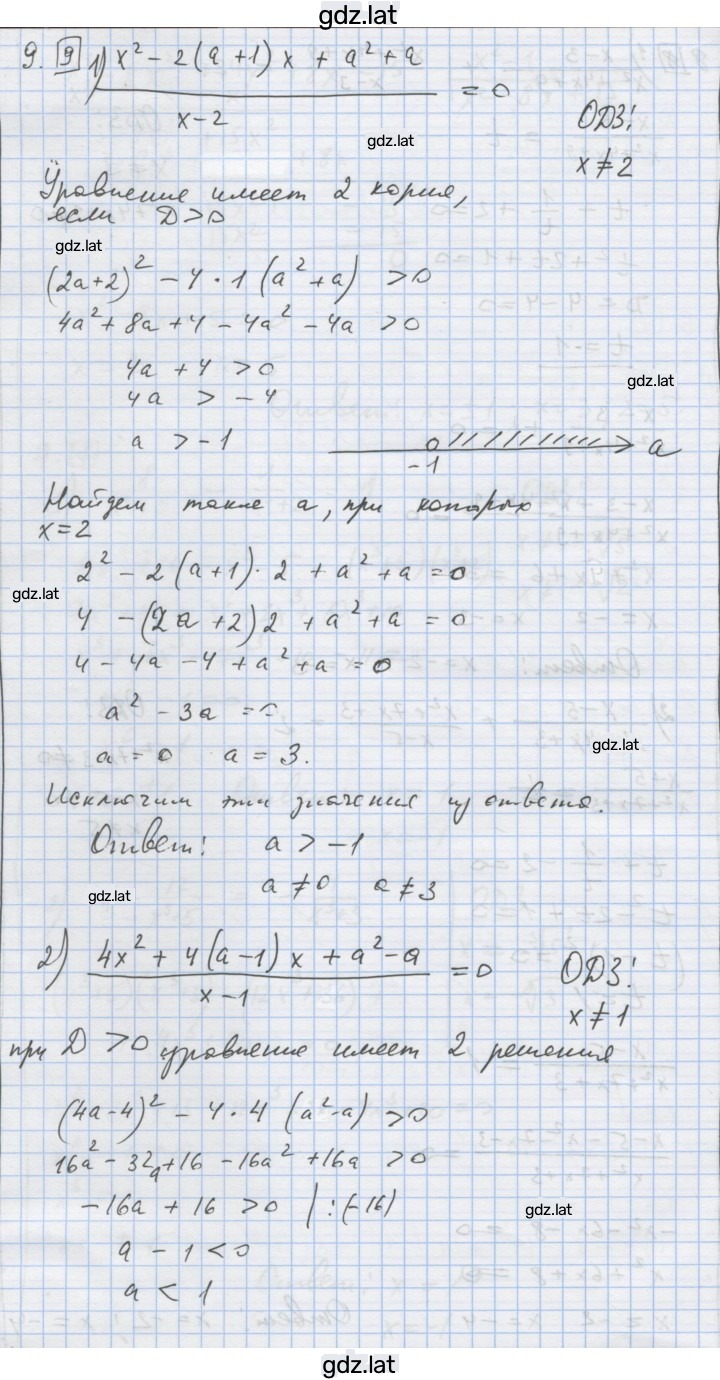 gdz.lat
9. 9 1) x² - 2(a+1)x + a² + a
x-2
= 0
ОДЗ:
x ≠ 2
gdz.lat
Уравнение имеет 2 корня,
если D>0
gdz.lat
(2a+2)² - 4·1(a²+a) >0
4a² + 8a + 4 - 4a² - 4a >0
4a + 4 >0
gdz.lat
4a > -4
a > -1
-1
a
Найдем такие a, при которых
x=2
2² - 2(a+1)·2 + a² + a = 0
gdz.lat
4 - (2a+2)2 + a² + a = 0
4 - 4a - 4 + a² + a = 0
a² - 3a = 0
gdz.lat
a = 0 a = 3.
Исключим эти значения из ответа.
Ответ: a > -1
gdz.lat
a ≠ 0 a ≠ 3
2) 4x² + 4(a-1)x + a² - a
x-1
= 0
ОДЗ:
x ≠ 1
при D >0 уравнение имеет 2 решения
(4a-4)² - 4·4(a²-a) >0
16a² - 32a + 16 - 16a² + 16a >0
-16a + 16 >0 |:(-16)
gdz.lat
a - 1 < 0
a < 1
gdz.lat